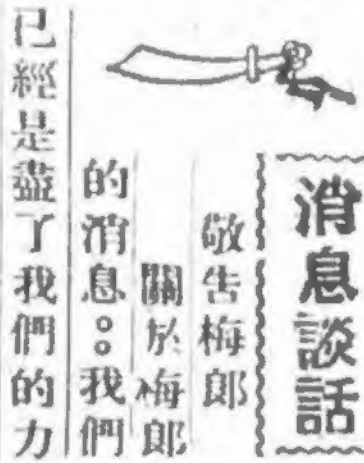 消息談話
敬告梅郎
關於梅郎
的消息。。我們
已經是盡了我們的力